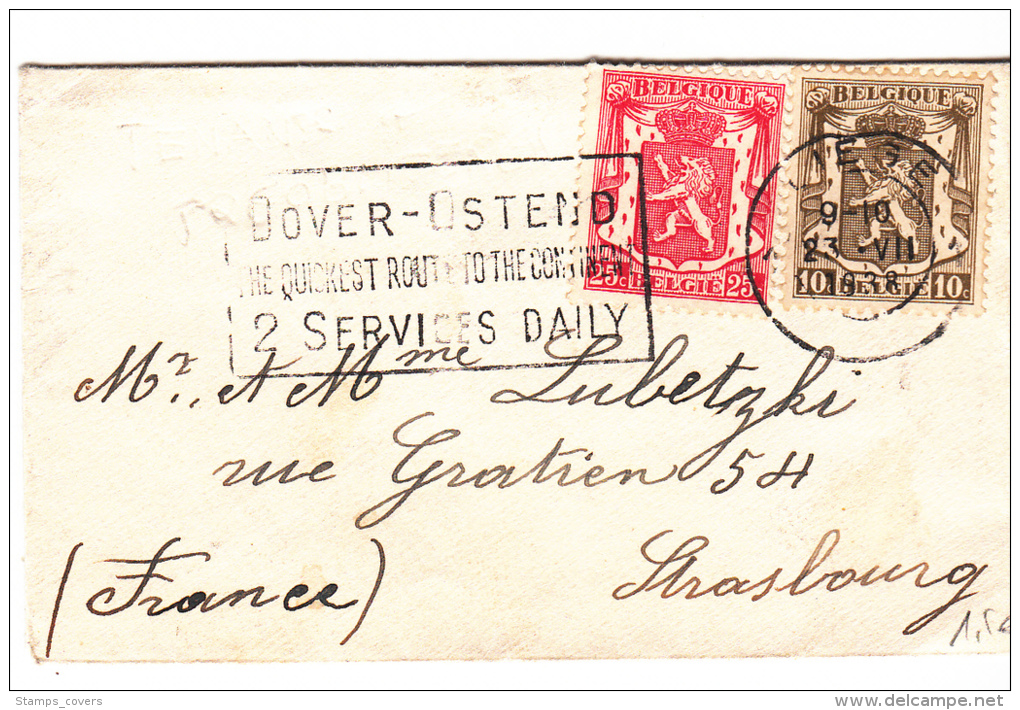 BELGIQUE
25c BELGIË 25c
BELGIQUE
10c BELGIË 10c
LIEGE
9-10
23 VII
1938
DOVER-OSTEND
THE QUICKEST ROUTE TO THE CONTINENT
2 SERVICES DAILY
Mr. et Mme Lubetzki
rue Gratien 54
Strasbourg
(France)
Stamps_covers
delcampe.net